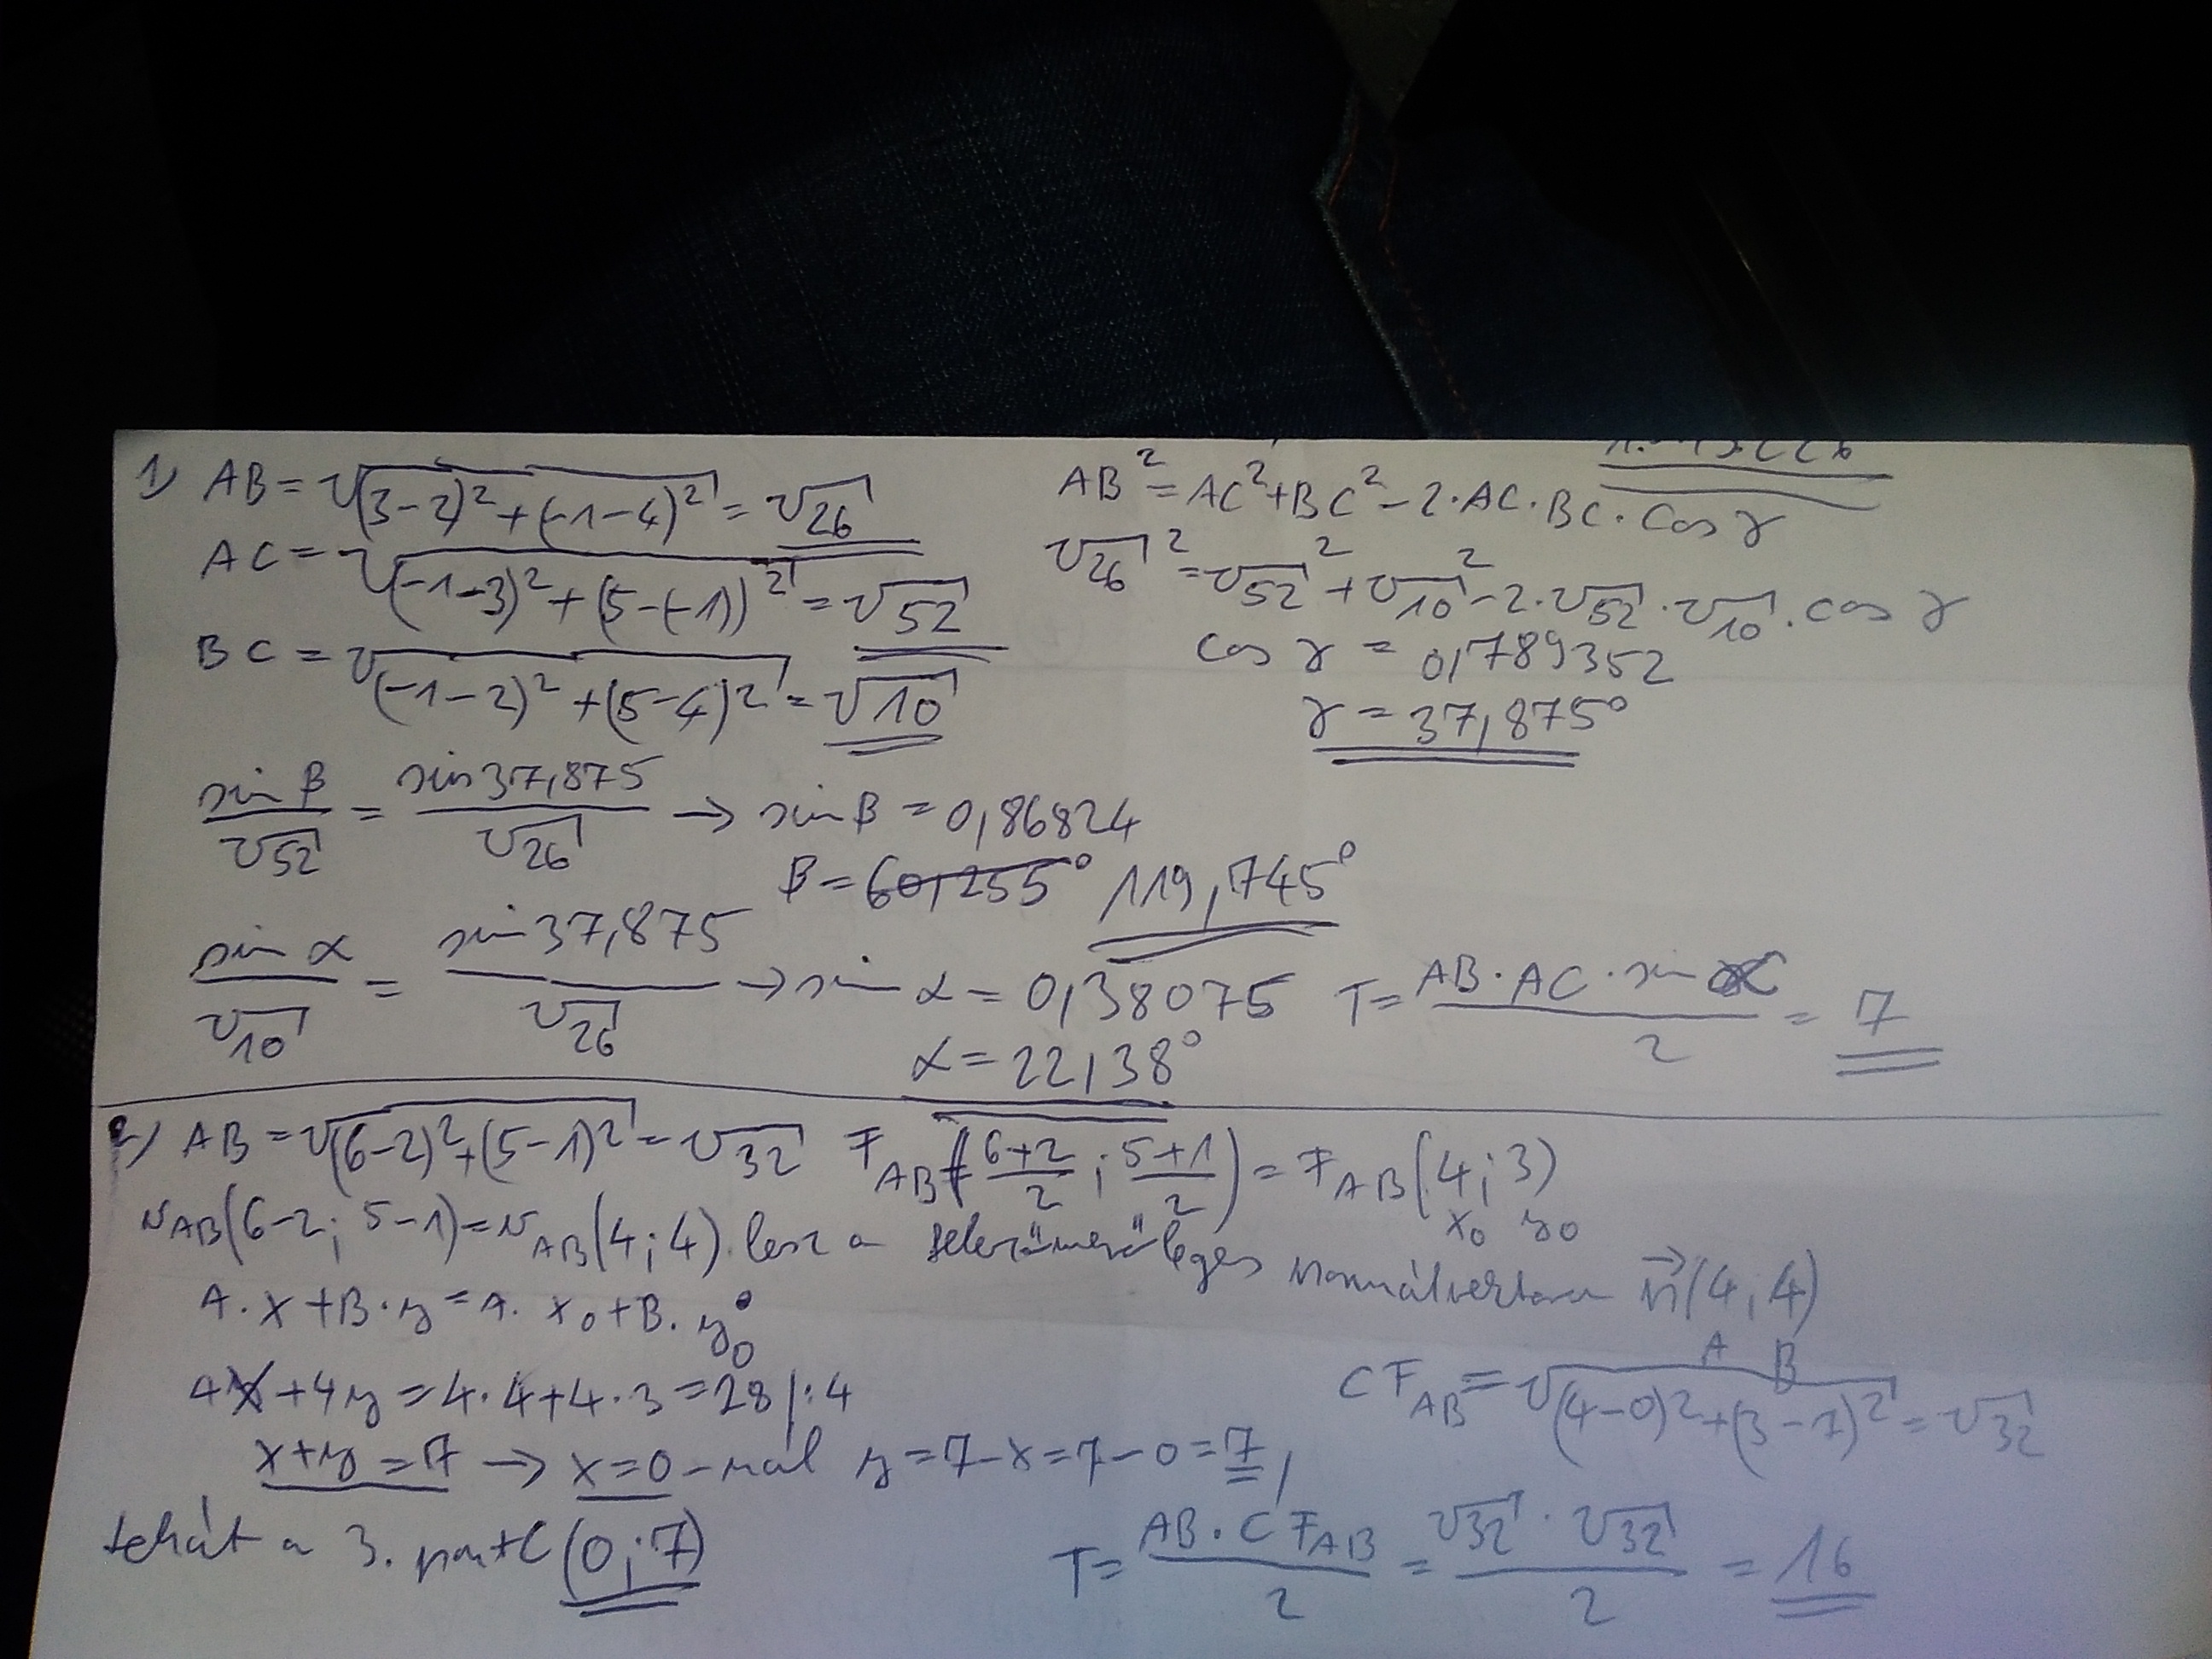 1) AB = √(3-2)² + (-1-4)² = √26
AC = √(-1-3)² + (5-(-1))² = √52
BC = √(-1-2)² + (5-4)² = √10
AB² = AC² + BC² - 2·AC·BC·cos γ
√26² = √52² + √10² - 2·√52·√10·cos γ
cos γ = 0,789352
γ = 37,875°
sin β / √52 = sin 37,875 / √26 → sin β = 0,86824
β = 60,255° 119,745°
sin α / √10 = sin 37,875 / √26 → sin α = 0,38075
α = 22,38°
T = AB·AC·sin α / 2 = 7
2) AB = √(6-2)² + (5-1)² = √32 F_AB (6+2/2 ; 5+1/2) = F_AB (4; 3)
x₀ y₀
v_AB (6-2; 5-1) = v_AB (4; 4) lesz a felezőmerőleges normálvektora n⃗(4; 4)
A B
A·x + B·y = A·x₀ + B·y₀
4x + 4y = 4·4 + 4·3 = 28 /:4
x+y = 7 → x=0-nál y = 7-x = 7-0 = 7,
tehát a 3. pont C (0; 7)
CF_AB = √(4-0)² + (3-7)² = √32
T = AB·CF_AB / 2 = √32·√32 / 2 = 16